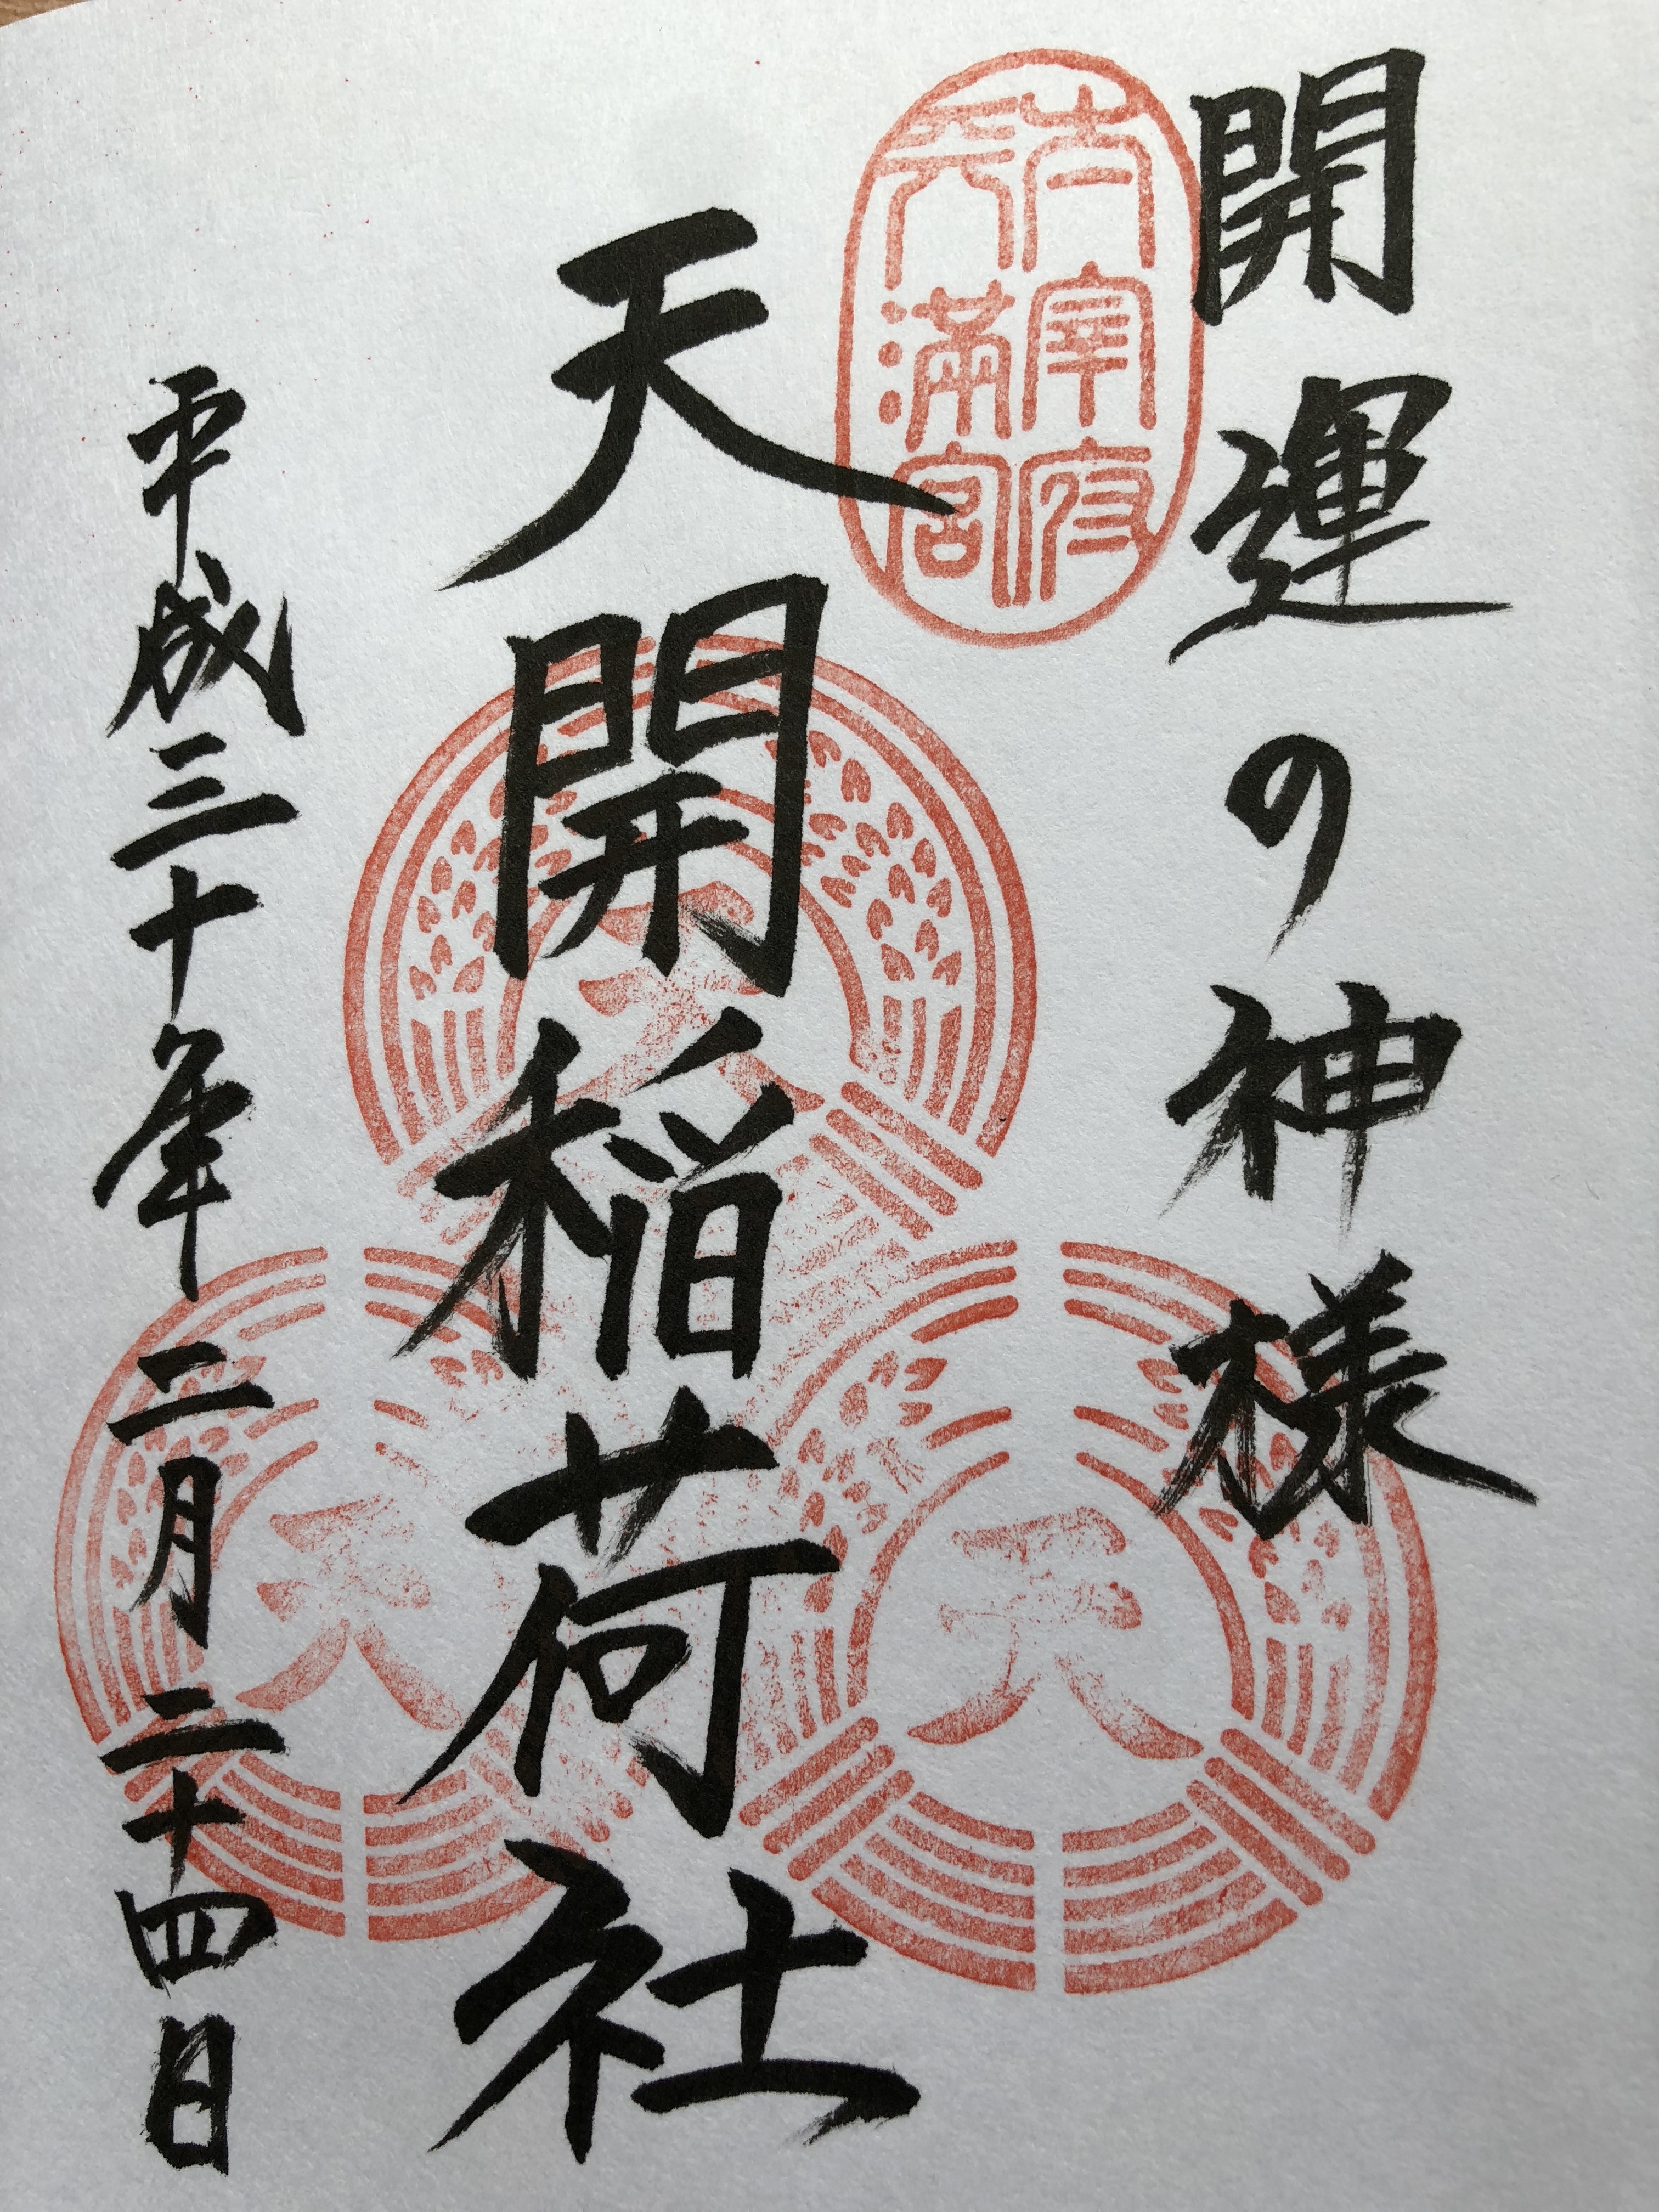 開運の神様
太宰府
天満宮
天開稲荷社
天
天
天
平成三十年二月二十四日